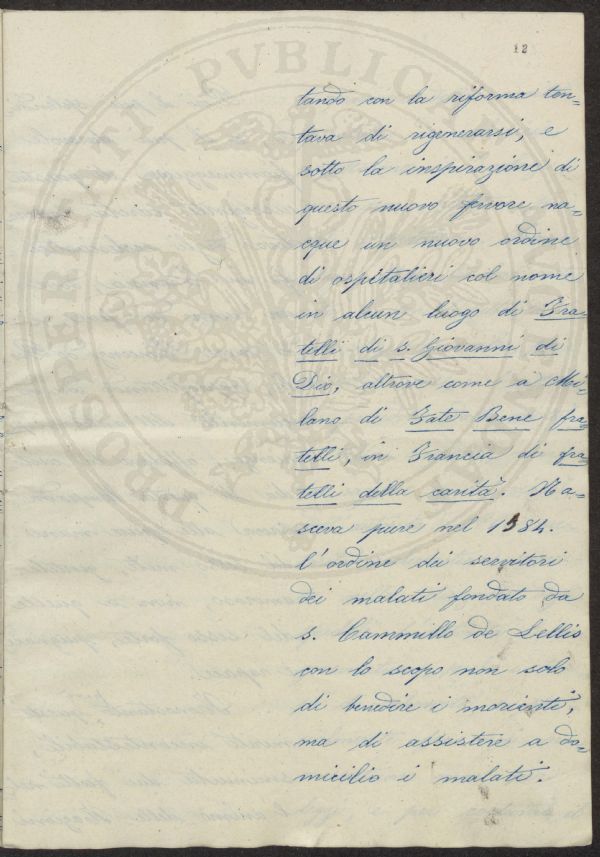 12
tando con la riforma ten=
tava di rigenerarsi, e
sotto la inspirazione di
questo nuovo fervore na=
cque un nuovo ordine
di ospitalieri col nome
in alcun luogo di Fra=
telli di S. Giovanni di
Dio, altrove come a Mi=
lano di Fate Bene fra=
telli, in Francia di fra=
telli della carità. Na=
sceva pure nel 1584.
l'ordine dei servitori
dei malati fondato da
S. Cammillo de Lellis
con lo scopo non solo
di benedire i morienti,
ma di assistere a do=
micilio i malati.